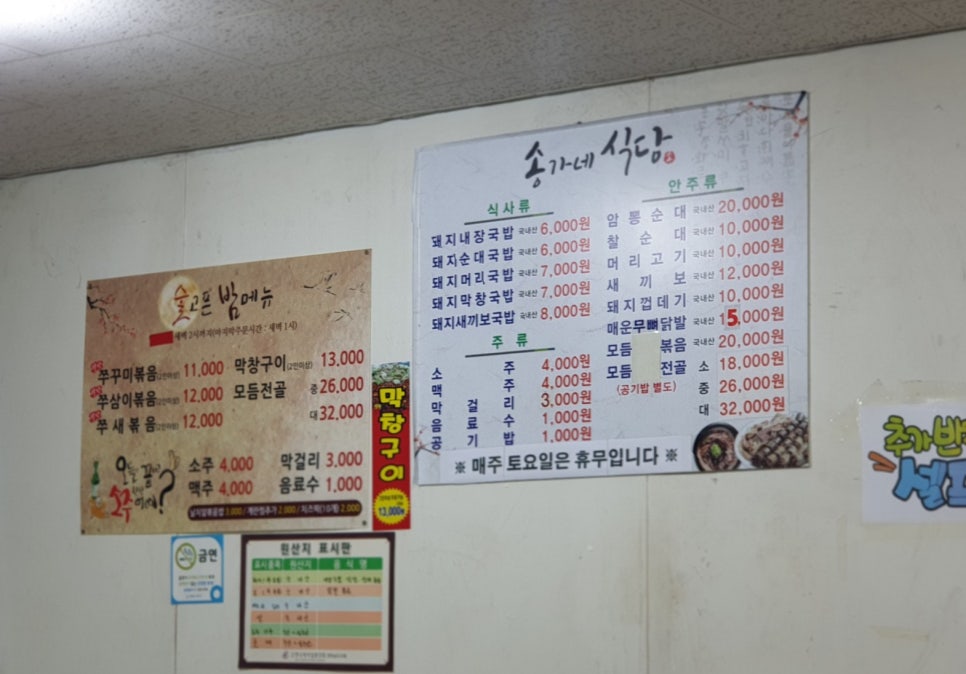 송가네 식당
식사류
돼지내장국밥 국내산 6,000원
돼지순대국밥 국내산 6,000원
돼지머리국밥 국내산 7,000원
돼지막창국밥 국내산 7,000원
돼지새끼보국밥 국내산 8,000원
주류
소주 4,000원
맥주 4,000원
막걸리 3,000원
음료수 1,000원
공기밥 1,000원
안주류
암뽕순대 국내산 20,000원
찰순대 국내산 10,000원
머리고기 국내산 10,000원
새끼보 국내산 12,000원
돼지껍데기 국내산 10,000원
매운무뼈닭발 국내산 15,000원
모듬 볶음 국내산 20,000원
모듬 전골 소 18,000원
(공기밥 별도) 중 26,000원
대 32,000원
※ 매주 토요일은 휴무입니다 ※
술고픈 밤메뉴
새벽 2시까지(마지막주문시간 : 새벽 1시)
쭈꾸미볶음(2인이상) 11,000
쭈삼이볶음(2인이상) 12,000
쭈새볶음(2인이상) 12,000
막창구이(2인이상) 13,000
모듬전골 중 26,000
대 32,000
오늘 끝나고
소주 한잔 어때?
소주 4,000
맥주 4,000
막걸리 3,000
음료수 1,000
날치알볶음밥 3,000 / 계란찜추가 2,000 / 치즈떡(10개) 2,000
막창구이
13,000원
금연
원산지 표시판
표시품목 원산지 음식명
추가반
셀프